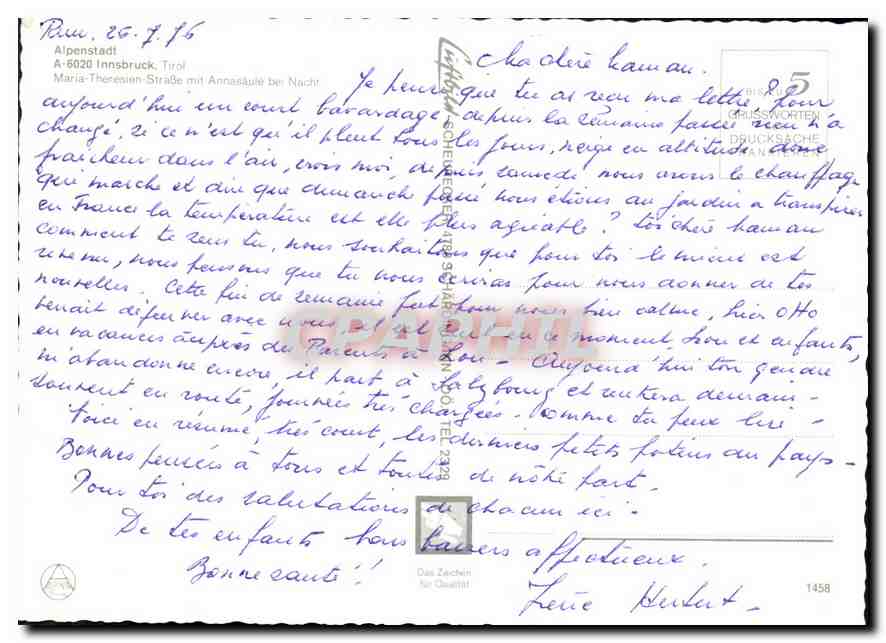 Rum, 26.7.76
Alpenstadt
A-6020 Innsbruck, Tirol
Maria-Theresien-Straße mit Annasäule bei Nacht
Chère chère maman.
Je pense que tu as reçu ma lettre? Pour
aujourd'hui un court bavardage, depuis la semaine passée rien n'a
changé, si ce n'est qu'il pleut tous les jours, neige en altitude donc
fraicheur dans l'air, crois moi, depuis samedi nous avons le chauffage
qui marche et dire que dimanche passé nous étions au jardin a transpirer
en France la température est elle plus agréable? toi chère maman
comment te sens tu, nous souhaitons que pour toi le mieux est
revenu, nous pensons que tu nous écriras pour nous donner de tes
nouvelles. Cette fin de semaine fut pour nous bien calme, hier Otto
venait déjeuner avec nous, il est seul en ce moment, son et enfants,
en vacances auprès des Parents à - Aujourd'hui ton gendre
m'abandonne encore, il part à Salzbourg et rentrera demain -
souvent en route, journées très chargées - comme tu peux lire -
Voici en résumé, très court, les derniers petits potins du pays -
Bonnes pensées à tous et toutes de nôtre part -
Pour toi des salutations de chacun ici -
De tes enfants bons baisers affectueux.
Bonne santé!!
Herbert -
BIS ZU 5
GRUSSWORTEN
DRUCKSACHE
Luftbild-SCHEURECKER 4780 SCHÄRDING/INN, OÖ., TEL 2329
CPARHIL
Das Zeichen
für Qualität
1458